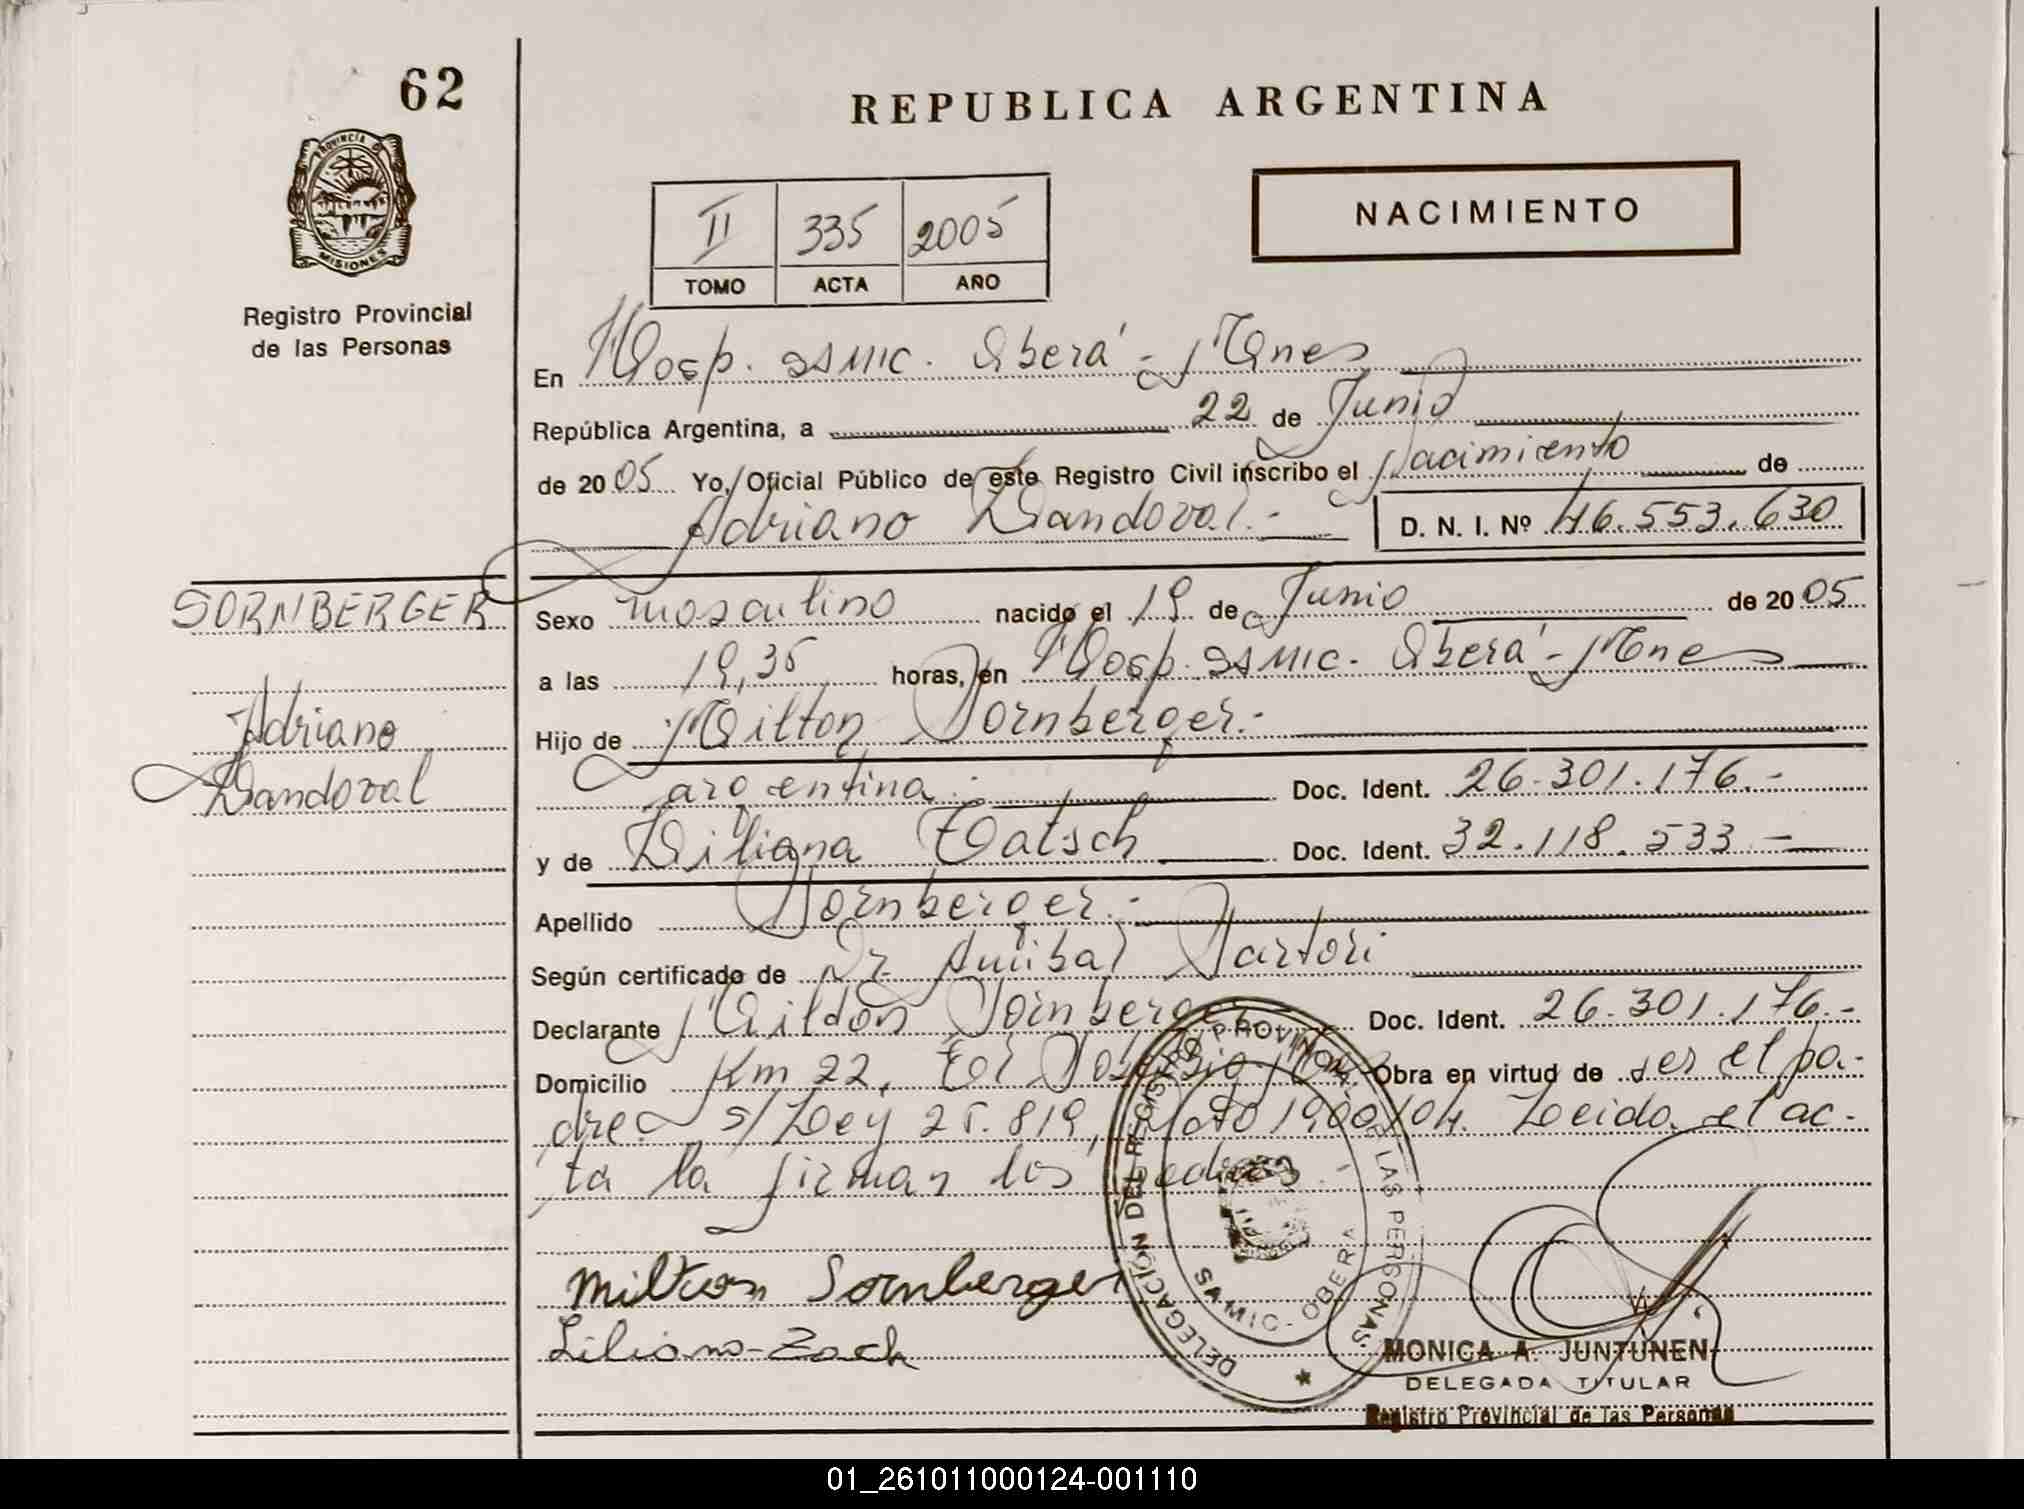 62
REPUBLICA ARGENTINA
PROVINCIA D
MISIONES
Registro Provincial
de las Personas
II 335 2005
TOMO ACTA AÑO
NACIMIENTO
En Hosp. SAMIC. Oberá - Mnes
República Argentina, a 22 de Junio
de 2005 Yo, Oficial Público de este Registro Civil inscribo el Nacimiento de
Adriano Sandoval.- D. N. I. Nº 46.553.630
SORNBERGER
Adriano
Sandoval
Sexo masculino nacido el 19 de Junio de 2005
a las 19,35 horas, en Hosp. SAMIC. Oberá - Mnes
Hijo de Milton Sornberger.-
argentina.- Doc. Ident. 26.301.176.-
y de Liliana Doc. Ident. 32.118.533.-
Apellido Sornberger.-
Según certificado de Dr. Anibal Sartori
Declarante Sornberger Doc. Ident. 26.301.176.-
Domicilio Km 22, Obra en virtud de ser el pa-
dre. s/Ley 25.819, 1900/04. Leida el ac-
ta la firman los
Milton Sornberger
Liliana Zach
DELEGACIÓN DEL REGISTRO PROVINCIAL DE LAS PERSONAS
SAMIC - OBERA
MONICA A. JUNTUNEN
DELEGADA TITULAR
Registro Provincial de las Personas
01_261011000124-001110